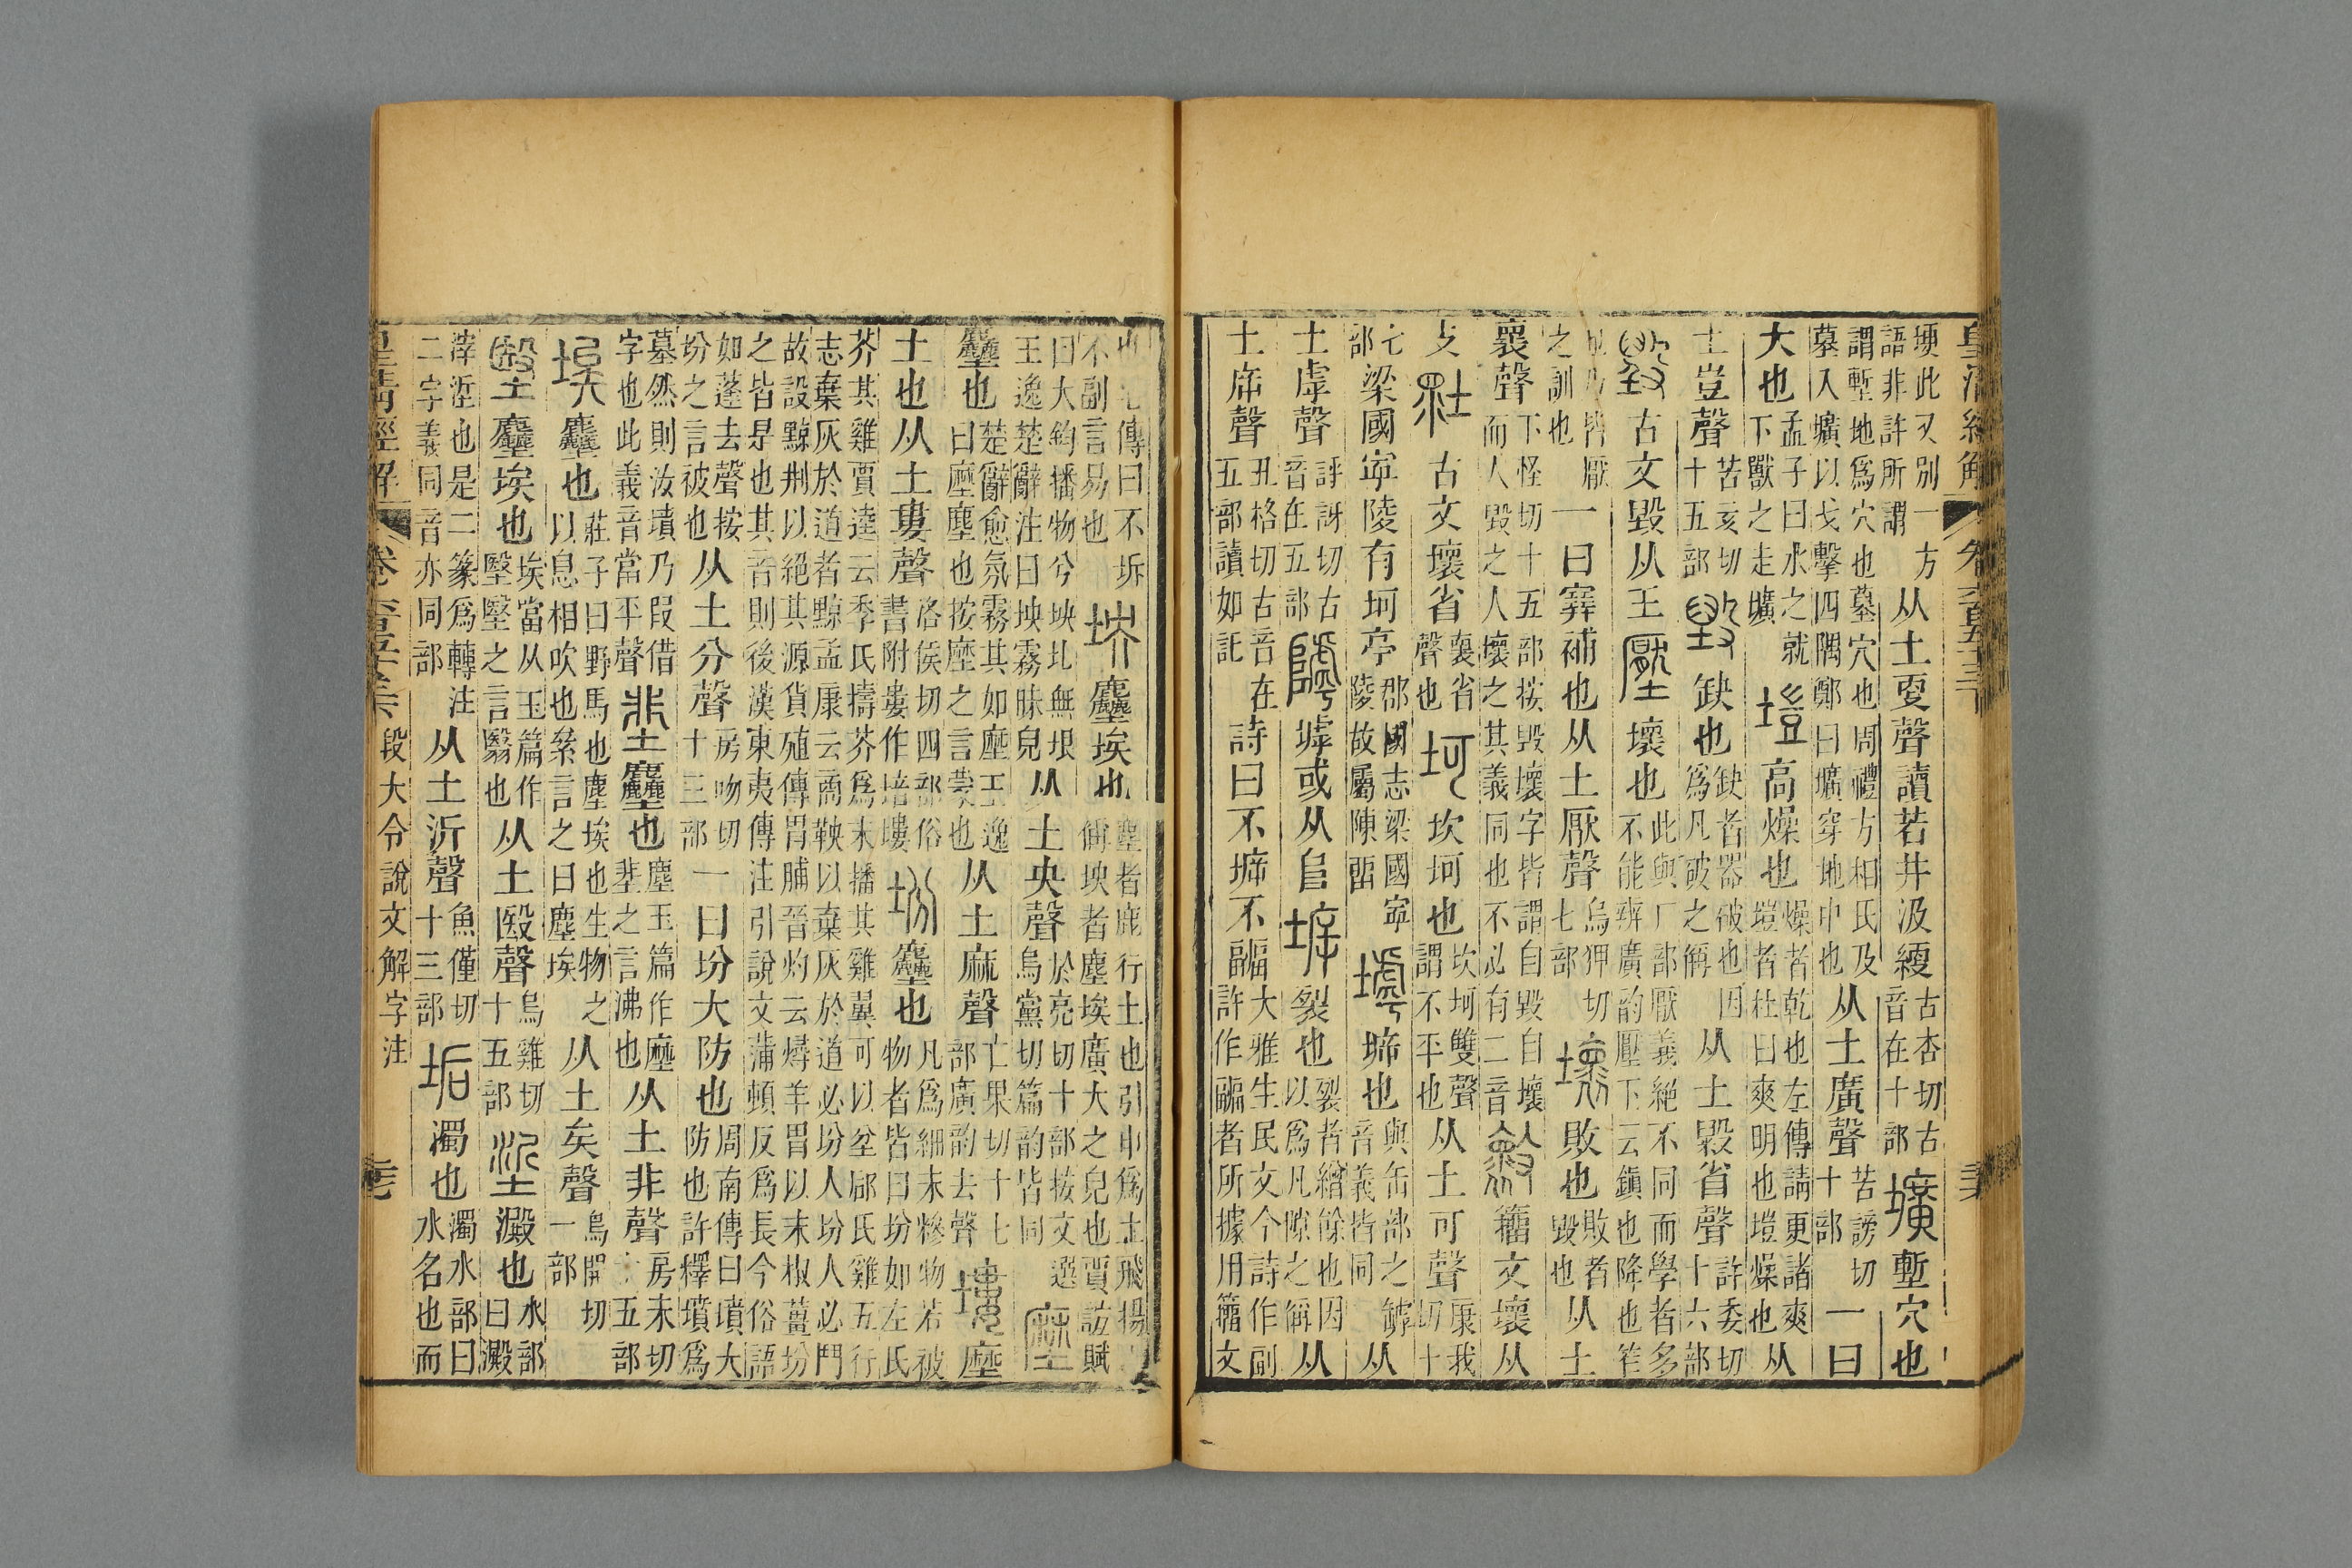 皇清經解 卷六百五十三
埂此又別一方語非許所謂从土㪅聲讀若井汲綆古杏切古音在十部壙塹穴也
謂塹地爲穴也墓穴也周禮方相氏及墓入壙以戈擊四隅鄭曰壙穿地中也从土廣聲苦謗切十部一曰
大也孟子曰水之就下獸之走壙塏高燥也燥者乾也左傳請更諸爽塏者杜曰爽明也塏燥也从
土豈聲苦亥切十五部毀缺也缺者器破也因爲凡破之偁从土毇省聲許委切十六部
古文毀从王壓壞也此與厂部厭義絕不同而學者多不能辨廣韵壓下云鎭也降也笮
也乃皆厭之訓也一曰窴補也从土厭聲烏狎切七部壞敗也敗者毀也从土
褱聲下怪切十五部按毀壞字皆謂自毀自壞而人毀之人壞之其義同也不必有二音籒文壞从
攴古文壞省褱省聲也坷坎坷也坎坷雙聲謂不平也从土可聲康我切十
七部梁國寧陵有坷亭郡國志梁國寧陵故屬陳畱㙤㙇也與缶部之罅音義皆同从
土虖聲呼訝切古音在五部㙤或从𨸏㙇裂也裂者繒餘也因以爲凡隙之偁从
土㡿聲丑格切古音在五部讀如託詩曰不㙇不疈大雅生民文今詩作副許作疈者所據用籒文
也毛傳曰不坼不副言易也坱塵埃也塵者鹿行土也引申爲土飛揚坱者塵埃廣大之皃也賈誼賦
曰大鈞播物兮坱圠無垠王逸楚辭注曰坱霧昧皃从土央聲於亮切十部按文選烏黨切篇韵皆同塺
塵也楚辭愈氛霧其如塺王逸曰塺塵也按塺之言蒙也从土麻聲亡果切十七部廣韵去聲塿塺
土也从土婁聲洛侯切四部俗書附婁作培塿坋塵也凡爲細末糝物若被物者皆曰坋如左氏
芥其雞賈逵云季氏擣芥爲末播其雞翼可以坌郈氏雞五行志棄灰於道者黥孟康云商鞅以棄灰於道必坋人坋人必鬥
故設黥刑以絕其源貨殖傳胃脯晉灼云燖羊胃以末椒薑坋之皆是也其音則後漢東夷傳注引說文蒲頓反爲長今俗語
如蓬去聲按坋之言被也从土分聲房吻切十三部一曰坋大防也周南傳曰墳大防也許釋墳爲
墓然則汝墳乃叚借字也此義音當平聲𡋚塵也塵玉篇作塺𡋚之言沸也从土非聲房未切十五部
埃塵也莊子曰野馬也塵埃也生物之以息相吹也案言之曰塵埃从土矣聲烏開切一部
塵埃也埃當从玉篇作堅堅之言翳也从土殹聲烏雞切十五部澱也水部曰澱
滓滓也是二篆爲轉注二字義同音亦同部从土沂聲魚僅切十三部垢濁也濁水部曰水名也而
皇清經解 卷六百五十三 段大令說文解字注